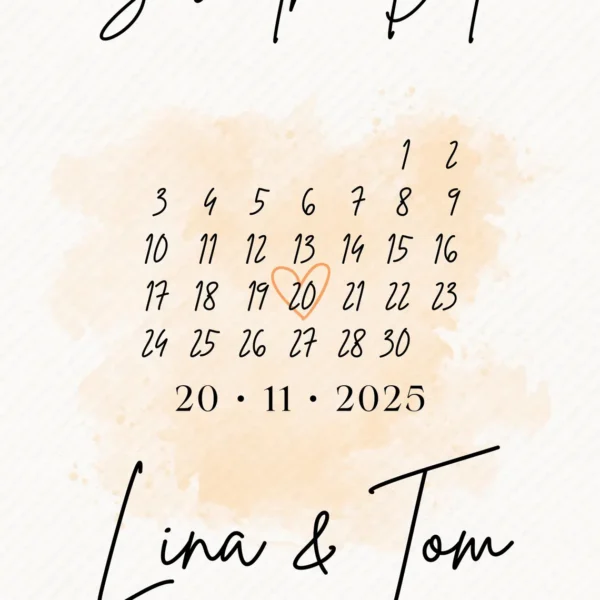 1 2
3 4 5 6 7 8 9
10 11 12 13 14 15 16
17 18 19 20 21 22 23
24 25 26 27 28 30
20 • 11 • 2025
Lina & Tom